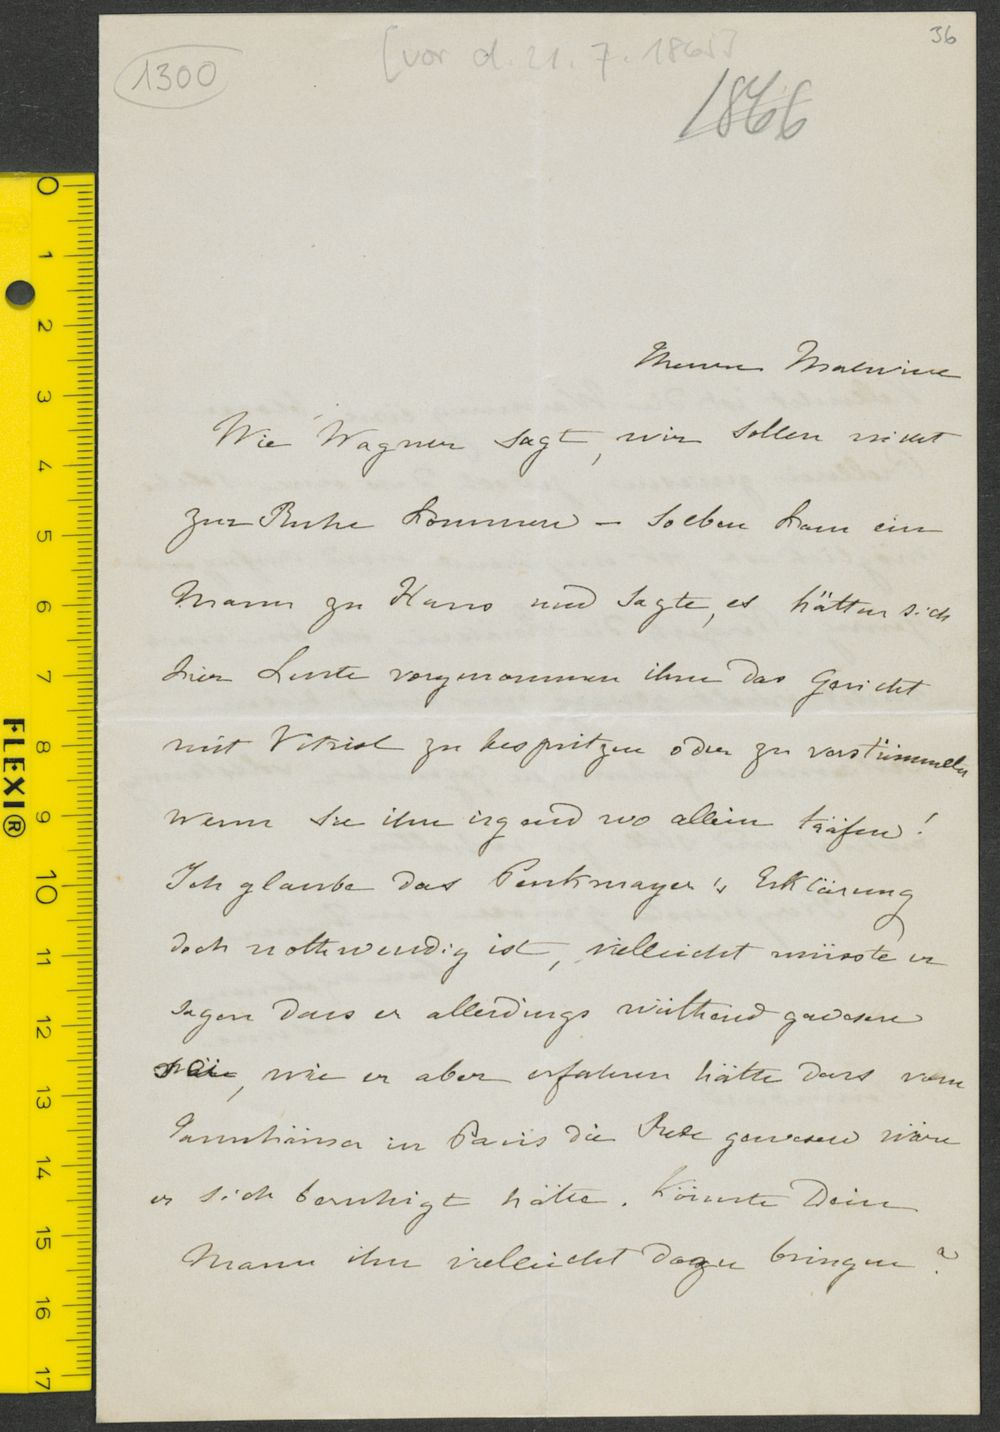 36
1300
[vor d. 21. 7. 1865]
1866
Theure Malwine
Wie Wagner sagt, wir sollen nicht
zur Ruhe kommen – soeben kam ein
Mann zu Hans und sagte, es hätten sich
hier Leute vorgenommen ihm das Gesicht
mit Vitriol zu bespritzen oder zu verstümmeln
wenn sie ihn irgend wo allein träfen!
Ich glaube das Penkmayer's Erklärung
doch nothwendig ist, vielleicht müsste er
sagen dass er allerdings wüthend gewesen
sei, wie er aber erfahren hätte dass vom
Tannhäuser in Paris die Rede gewesen wäre
er sich beruhigt hätte. Könnte Dein
Mann ihn vielleicht dazu bringen?
0
1
2
3
4
5
6
7
8
9
10
11
12
13
14
15
16
17
FLEXI®